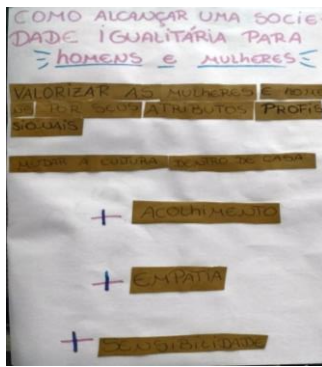 COMO ALCANÇAR UMA SOCIE-
DADE IGUALITÁRIA PARA
HOMENS E MULHERES
VALORIZAR AS MULHERES E HOME
NS POR SEUS ATRIBUTOS PROFIS
SIONAIS
MUDAR A CULTURA DENTRO DE CASA
+ ACOLHIMENTO
+ EMPATIA
+ SENSIBILIDADE